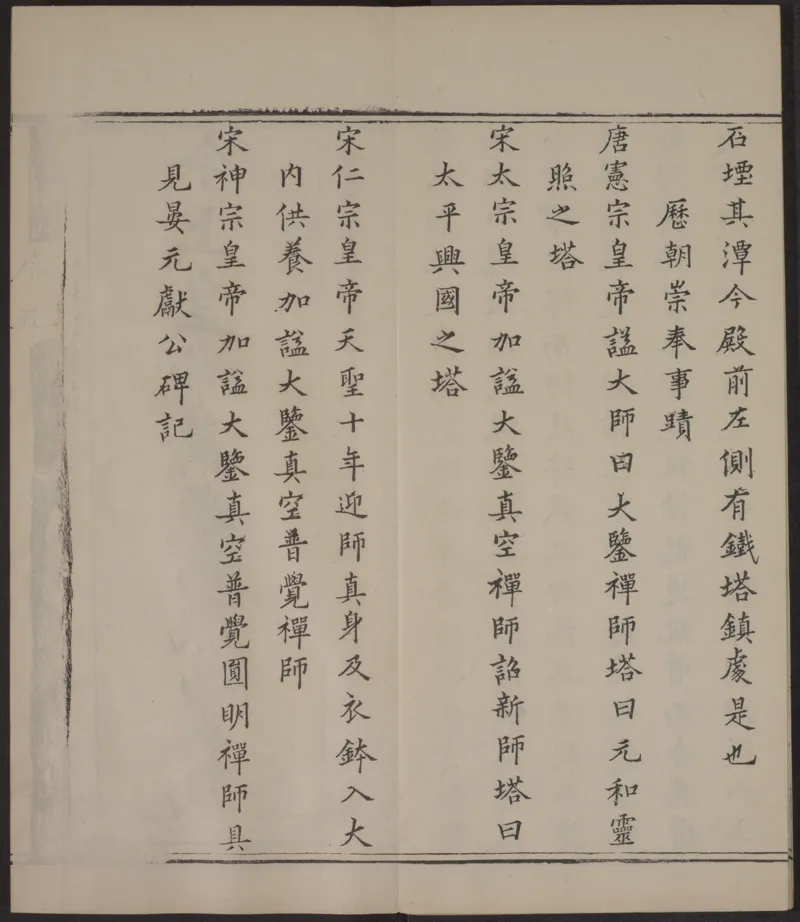 石堙其潭今殿前左側有鐵塔鎮處是也
歷朝崇奉事蹟
唐憲宗皇帝謚大師曰大鑒禪師塔曰元和靈
照之塔
宋太宗皇帝加謚大鑒真空禪師詔新師塔曰
太平興國之塔
宋仁宗皇帝天聖十年迎師真身及衣鉢入大
內供養加謚大鑒真空普覺禪師
宋神宗皇帝加謚大鑒真空普覺圓明禪師具
見晏元獻公碑記